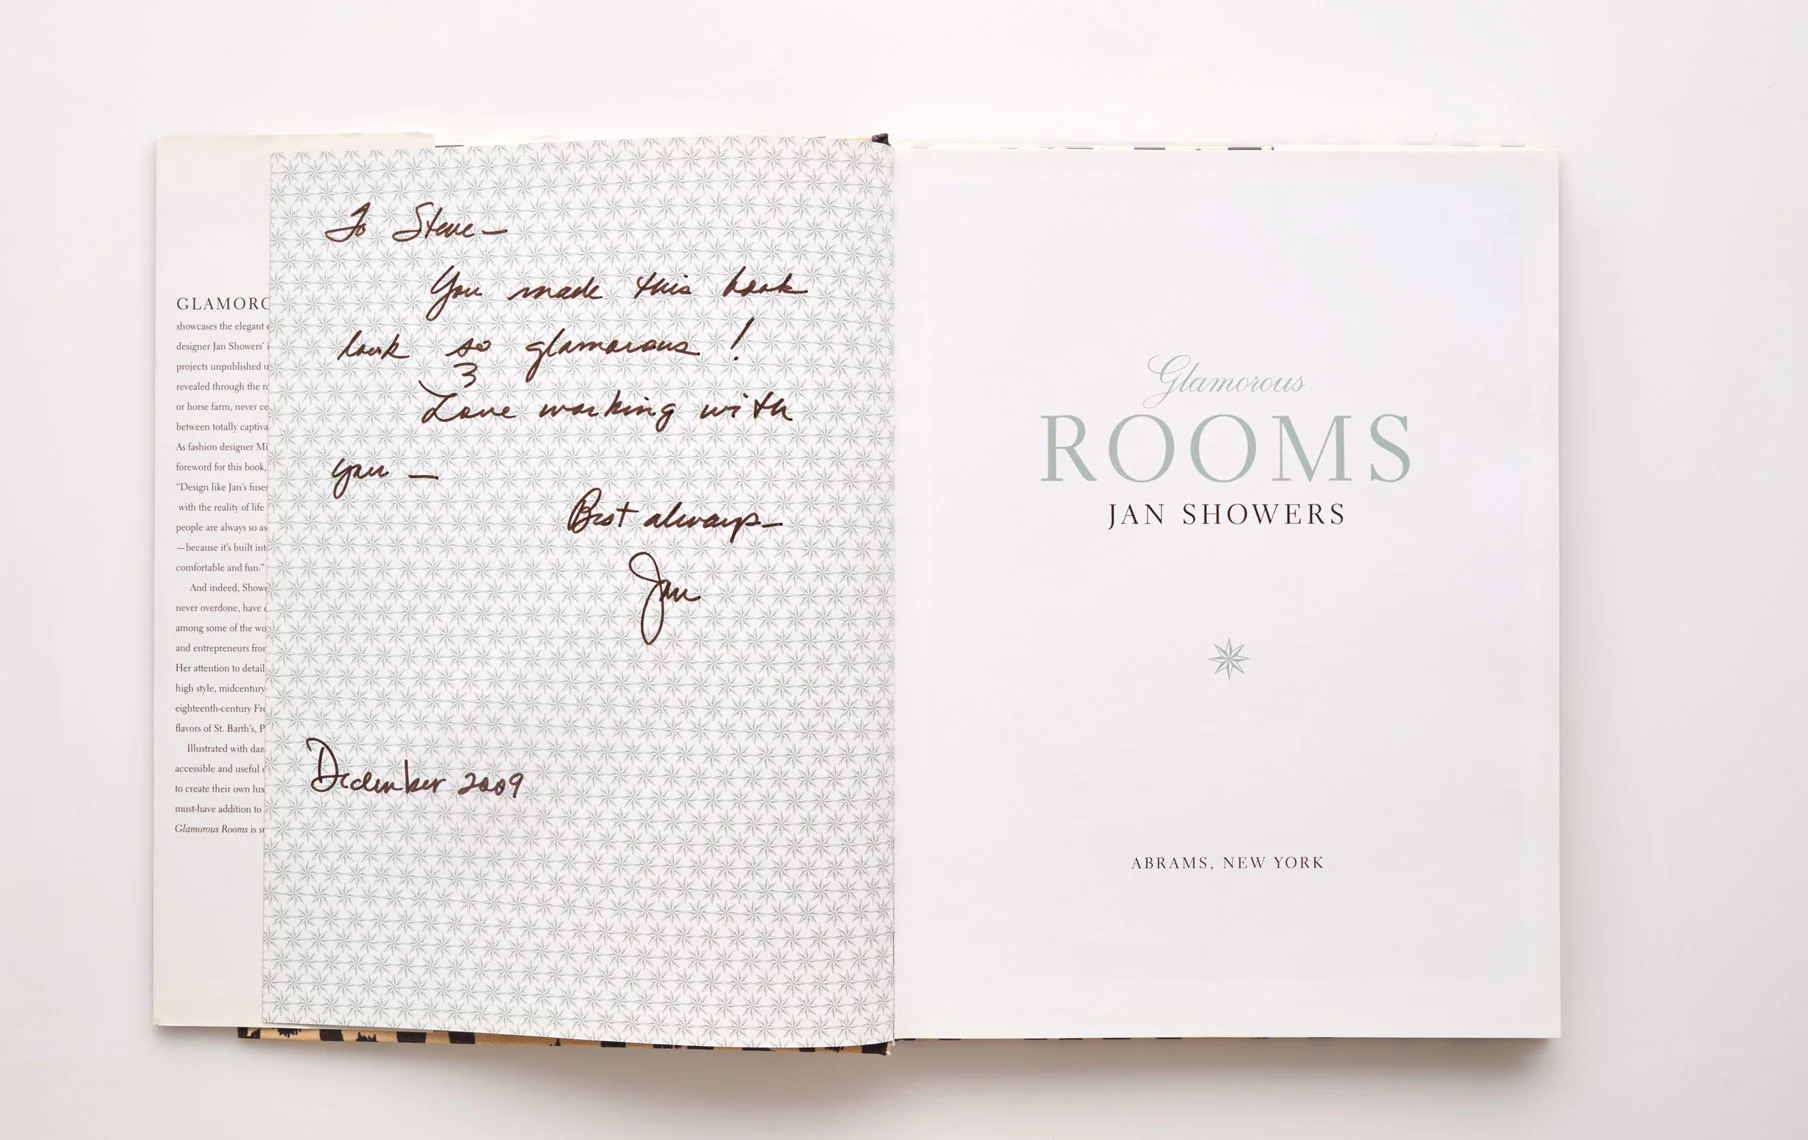 GLAMORO
showcases the elegant
designer Jan Showers'
projects unpublished
revealed through the
or horse farm, never
between totally
As fashion designer
foreword for this book,
"Design like Jan's
with the reality of life
people are always so as
—because it's built
comfortable and fun."
And indeed,
never overdone, have
among some of the
and entrepreneurs
Her attention to detail
high style, midcentury
eighteenth-century
flavors of St. Barth's,
Illustrated with
accessible and useful
to create their own
must-have addition to
Glamorous Rooms is
To Steve—
You made this book
look so glamorous!
Love working with
you —
Best always—
Jan
December 2009
Glamorous
ROOMS
JAN SHOWERS
ABRAMS, NEW YORK